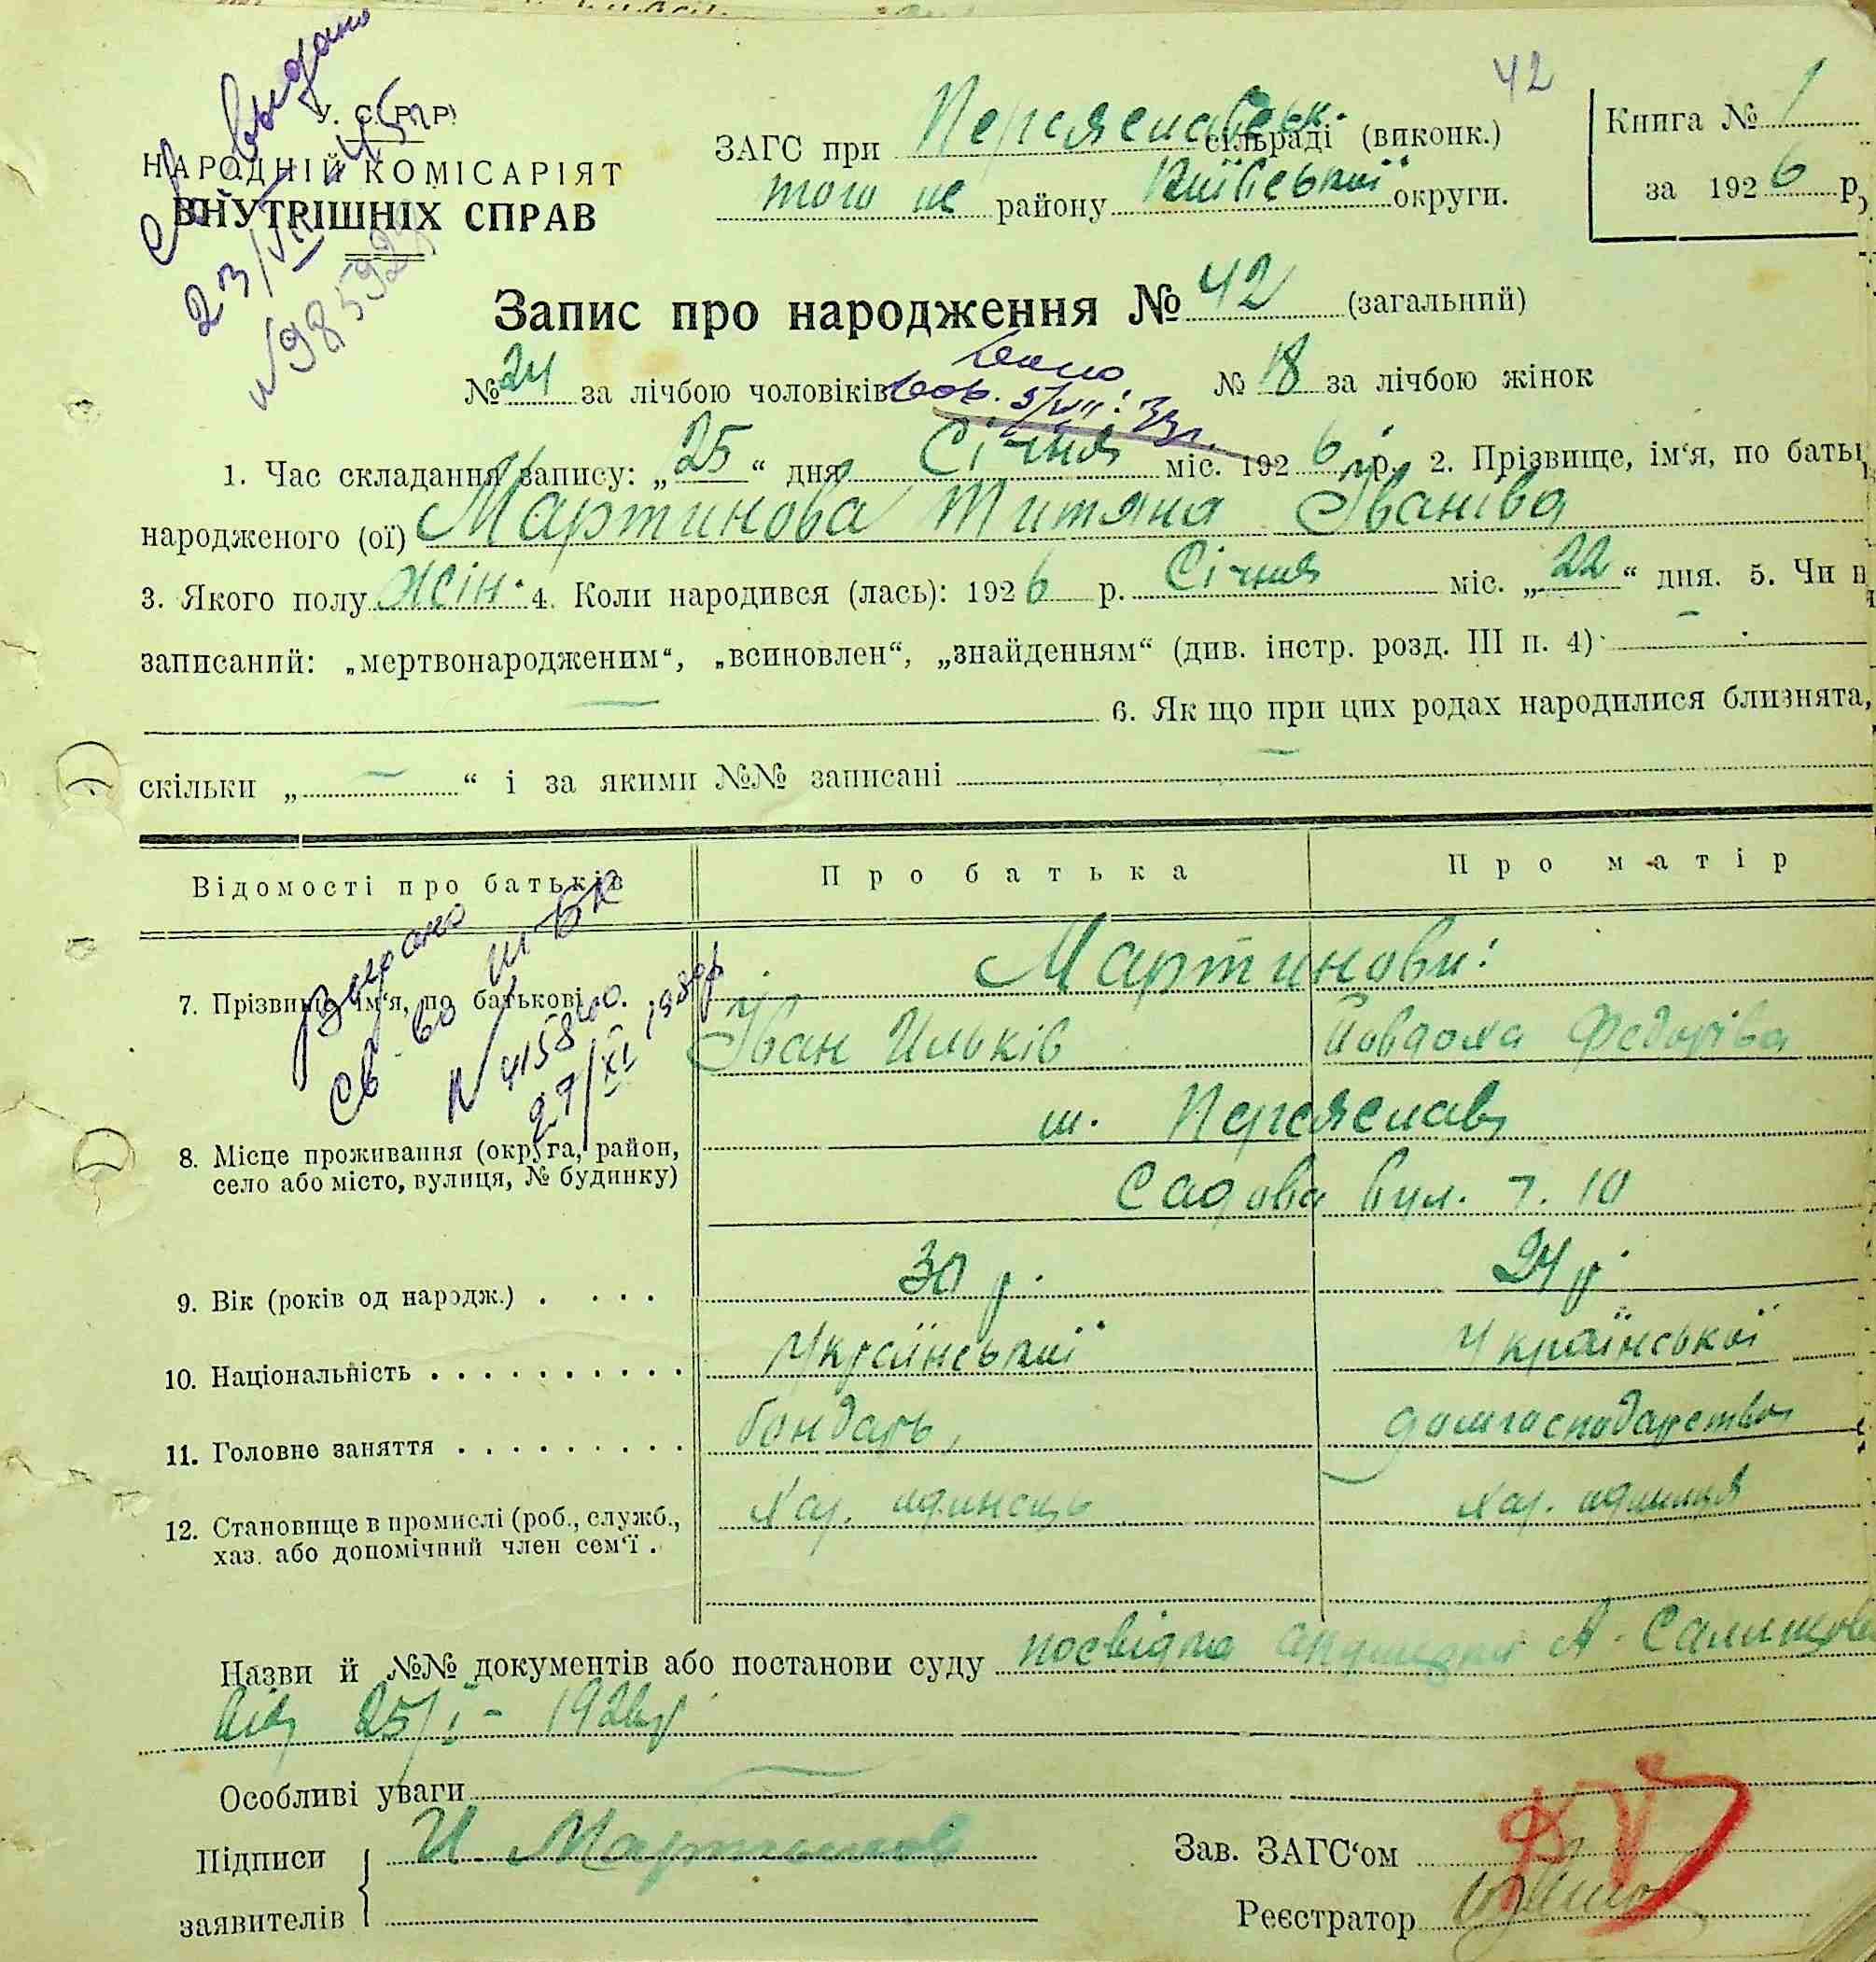 42
У. С. Р. Р.
НАРОДНІЙ КОМІСАРІЯТ
ВНУТРІШНІХ СПРАВ
Св. выдано
23/VII 45 р
№ 98592
ЗАГС при Переяславськ. сільраді (виконк.)
того же району Київської округи.
Книга № 1
за 1926 р.
Запис про народження № 42 (загальний)
№ 24 за лічбою чоловіків № 18 за лічбою жінок
1. Час складання запису: „25“ дня Січня міс. 1926 р. 2. Прізвище, ім‘я, по батьк
народженого (ої) Мартинова Титяна Іванівна
3. Якого полу жін. 4. Коли народився (лась): 1926 р. Січня міс. „22“ дня. 5. Чи н
записаний: „мертвонародженим“, „всиновлен“, „знайденням“ (див. інстр. розд. III п. 4) –
6. Як що при цих родах народилися близнята,
скільки „ – “ і за якими №№ записані –
Відомості про батьків Про батька Про матір
Мартинови:
7. Прізвище, ім‘я, по батькові Іван Ильків Йовдоха Федорівна
Выдано
св-во
27/XI
8. Місце проживання (округа, район, село або місто, вулиця, № будинку) м. Переяслав
Садова вул. ч. 10
9. Вік (років од народж.) 30 р. 24 р.
10. Національність Української Української
11. Головне заняття бондарь, домгосподарство
12. Становище в промислі (роб., служб., хаз. або допомічний член сем‘ї . хаз. одинець хаз. одиниця
Назви й №№ документів або постанови суду посвідка акушерки А.
від 25/I – 1926 р
Особливі уваги
Підписи заявителів И. Мартинов
Зав. ЗАГС‘ом
Реєстратор